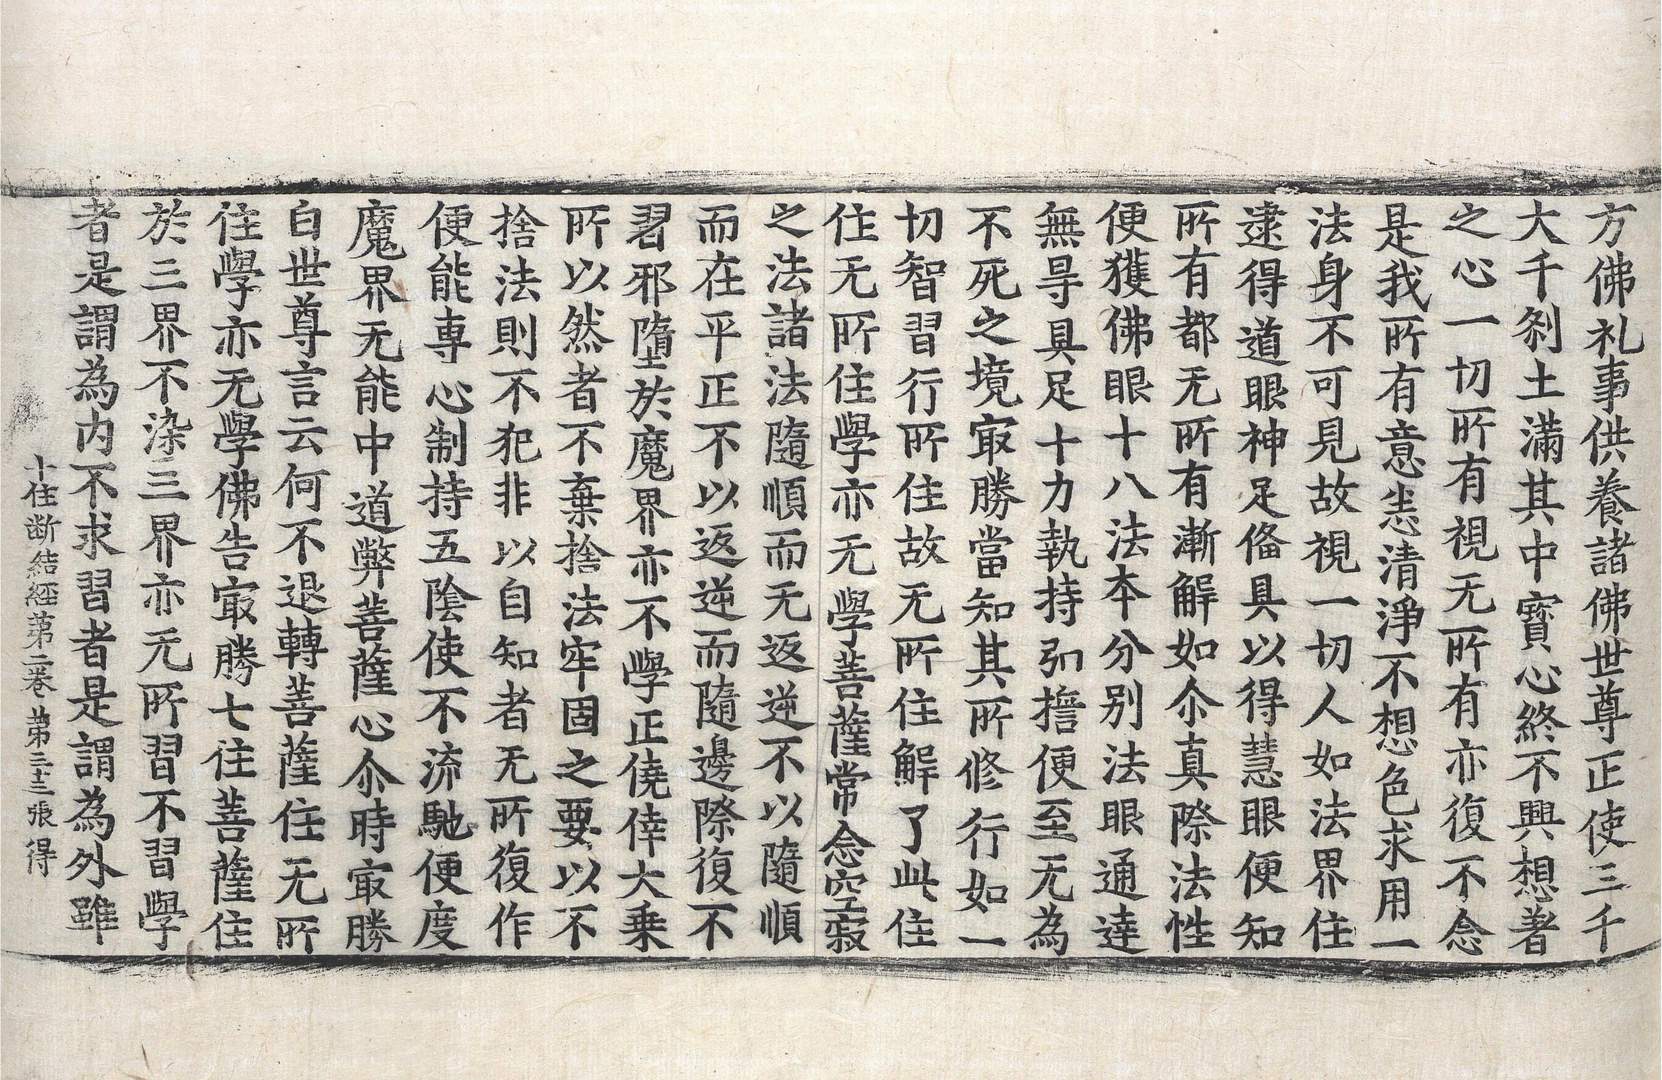 方佛礼事供養諸佛世尊正使三千
大千刹土滿其中寶心終不興想著
之心一切所有視无所有亦復不念
是我所有意恚清淨不想色求用一
法身不可見故視一切人如法界住
逮得道眼神足俻具以得慧眼便知
所有都无所有漸解如尒真際法性
便獲佛眼十八法本分别法眼通達
無㝵具足十力執持弘擔便至无為
不死之境㝡勝當知其所修行如一
切智習行所住故无所住解了此住
住无所住學亦无學菩薩常念空寂
之法諸法隨順而无返逆不以隨順
而在平正不以返逆而隨邊際復不
習邪墮於魔界亦不學正僥倖大乗
所以然者不棄捨法牢固之要以不
捨法則不犯非以自知者无所復作
便能專心制持五陰使不流馳便度
魔界无能中道弊菩薩心尒時㝡勝
白世尊言云何不退轉菩薩住无所
住學亦无學佛告㝡勝七住菩薩住
於三界不染三界亦无所習不習學
者是謂為内不求習者是謂為外雖
十住断結經第二卷 第三十三張 得